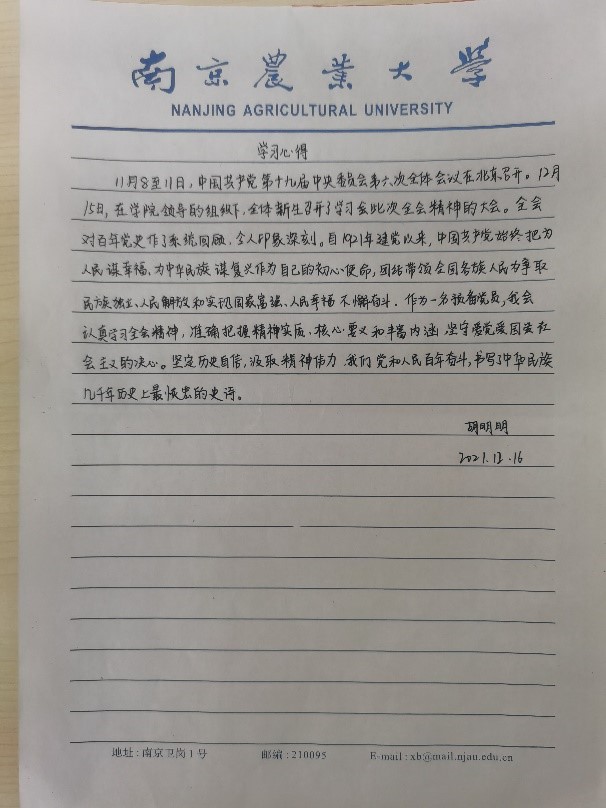 南京農業大學
NANJING AGRICULTURAL UNIVERSITY
学习心得
11月8至11日，中国共产党第十九届中央委员会第六次全体会议在北京召开。12月
15日，在学院领导的组织下，全体新生召开了学习会此次全会精神的大会。全会
对百年党史作了系统回顾，令人印象深刻。自1921年建党以来，中国共产党始终把为
人民谋幸福、为中华民族谋复兴作为自己的初心使命，团结带领全国各族人民为争取
民族独立、人民解放和实现国家富强、人民幸福不懈奋斗．作为一名预备党员，我会
认真学习全会精神，准确把握精神实质、核心要义和丰富内涵，坚守爱党爱国爱社
会主义的决心。坚定历史自信，汲取精神伟力．我们党和人民百年奋斗，书写了中华民族
几千年历史上最恢宏的史诗。
胡明明
2021.12.16
地址:南京卫岗1号 邮编:210095 E-mail:xb@mail.njau.edu.cn